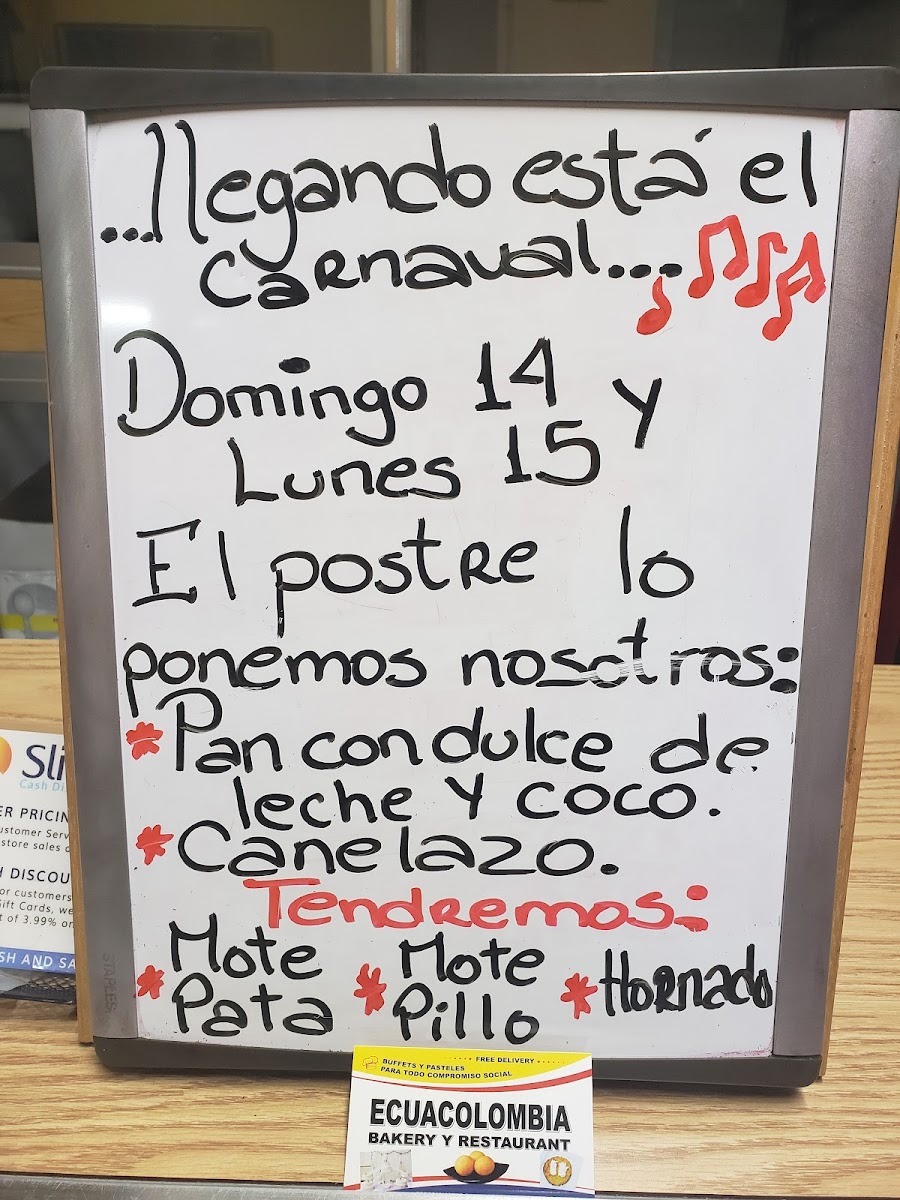 ...llegando está el
carnaval...
Domingo 14 y
Lunes 15
El postre lo
ponemos nosotros:
* Pan con dulce de
leche y coco.
* Canelazo.
Tendremos:
* Mote Pata * Mote Pillo * Hornado
STAPLES
FREE DELIVERY
BUFFETS Y PASTELES
PARA TODO COMPROMISO SOCIAL
ECUACOLOMBIA
BAKERY Y RESTAURANT
Cash Di
ER PRICIN
ustomer Serv
store sales
H DISCOU
or customers
Gift Cards, we
t of 3.99% on
SH AND SA